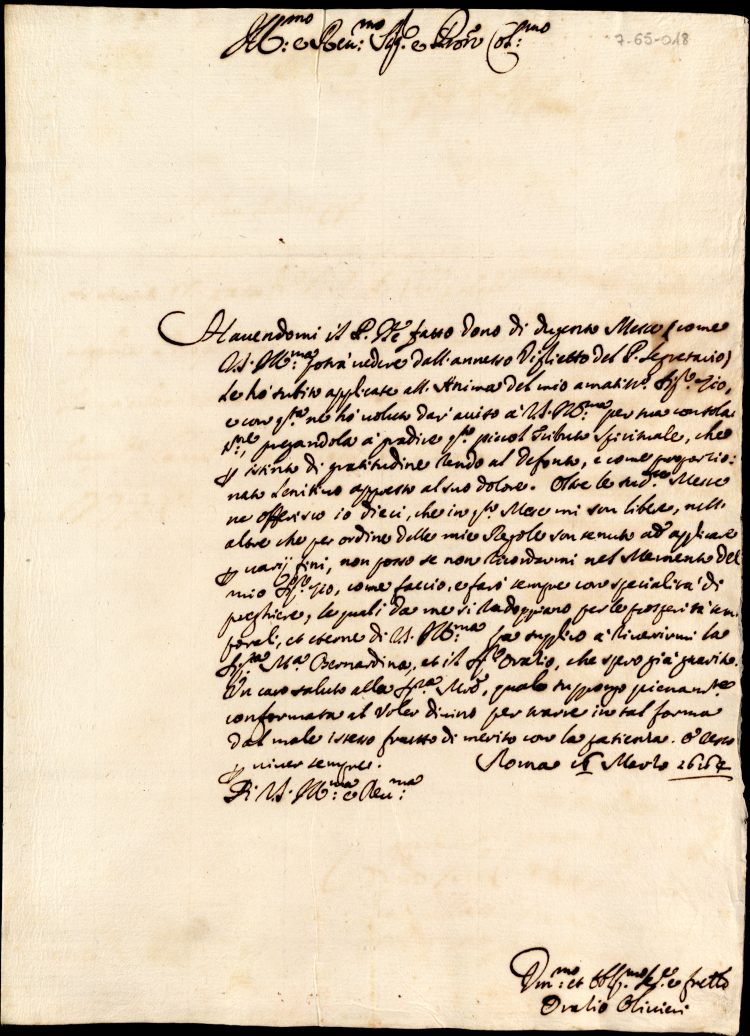 Ill:mo e Reu:mo Sig.r e Pron Col:mo
7-65-018
Hauendomi il P. Nr̃e fatto dono di dugento Messe (come
V.S. Ill:ma potrà uedere dall'annesso Viglietto del P. Segretario)
Le hò subito applicate all'Anima del mio amatiss.o Sig.r Zio,
e con q.ta ne hò uoluto dar' auiso à V.S. Ill:ma per sua consola
t.ne, pregandola à gradire q.to picciol tributo Spirituale, che
p istinto di gratitudine rendo al Defonto, e come proportio:
nato lenitiuo appresto al suo dolore. Oltre le sud.te Messe
ne offerisco io dieci, che in q.to Mese mi son libere, nell'
altre che per ordine delle mie Regole son tenuto ad applicare
p uarij fini, non posso se non ricordarmi nel Memento del
mio Sig.r Zio, come faccio, e farò sempre con specialità di
preghiere, le quali da me si radoppiano per le prosperità tem
porali, et eterne di V.S. Ill:ma La supplico à riuerirmi la
Sig.ra M.a Bernardina, et il Sig.r Oratio, che spero già guarito.
Un caro saluto alla Sig.ra Mrẽ, quale suppongo pienam.te
conformata al uoler diuino per trarre in tal forma
dal male istesso frutto di merito con la patienza. E resto
p uiuer sempre. Roma Marzo
Di V.S. Ill:ma e Reu:ma
Diu:mo et Obl:mo Se.re e fretto
Oratio Oliuieri